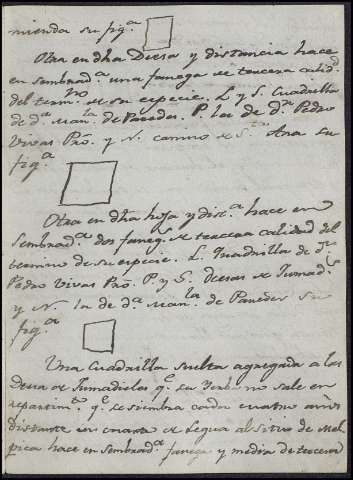 mienda su fig.ª
Otra en dha Dessa y distancia hace
en sembrad.ª una fanega de tercera calid.d
del term.no de su especie. L. y S. Quadrilla
de d.ª Man.la de Paredes. P. la de d.n Pedro
Vivas Pro. y N. camino de S.ta Ana su
fig.ª
Otra en dha hoja y dist.ª hace en
sembrad.ª dos faneg.s de tercera calidad del
termino de su especie. L. Quadrilla de d.n
Pedro Vivas Pro. P. y S. Deesas de Jumad.s
y N. la de d.ª Man.la de Paredes su
fig.ª
Una Quadrilla suelta agregada a las
Deesa de Jumadielas q.e su Yerba no sale en
repartim.to q.e se siembra cada cuatro años
distante un cuarto de legua al sitio de Mal
pica hace en sembrad.ª fanega y media de tercera